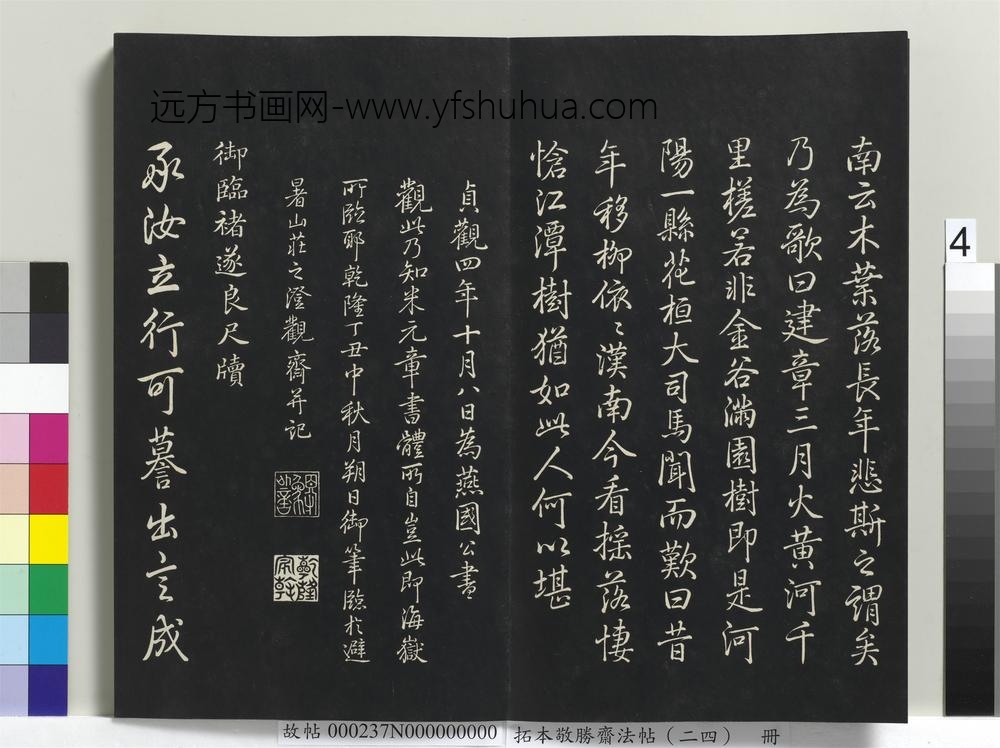 远方书画网-www.yfshuhua.com
南云木葉落長年悲斯之謂矣
乃為歌曰建章三月火黃河千
里槎若非金谷滿園樹即是河
陽一縣花桓大司馬聞而歎曰昔
年移柳依〻漢南今看搖落悽
愴江潭樹猶如此人何以堪
貞觀四年十月八日為燕國公書
觀此乃知米元章書體所自豈此即海嶽
所臨耶乾隆丁丑中秋月朔日御筆臨於避
暑山莊之澄觀齋并記
乾隆
宸翰
御臨褚遂良尺牘
承汝立行可慕出言成
4
故帖 000237N000000000 拓本敬勝齋法帖（二四） 冊